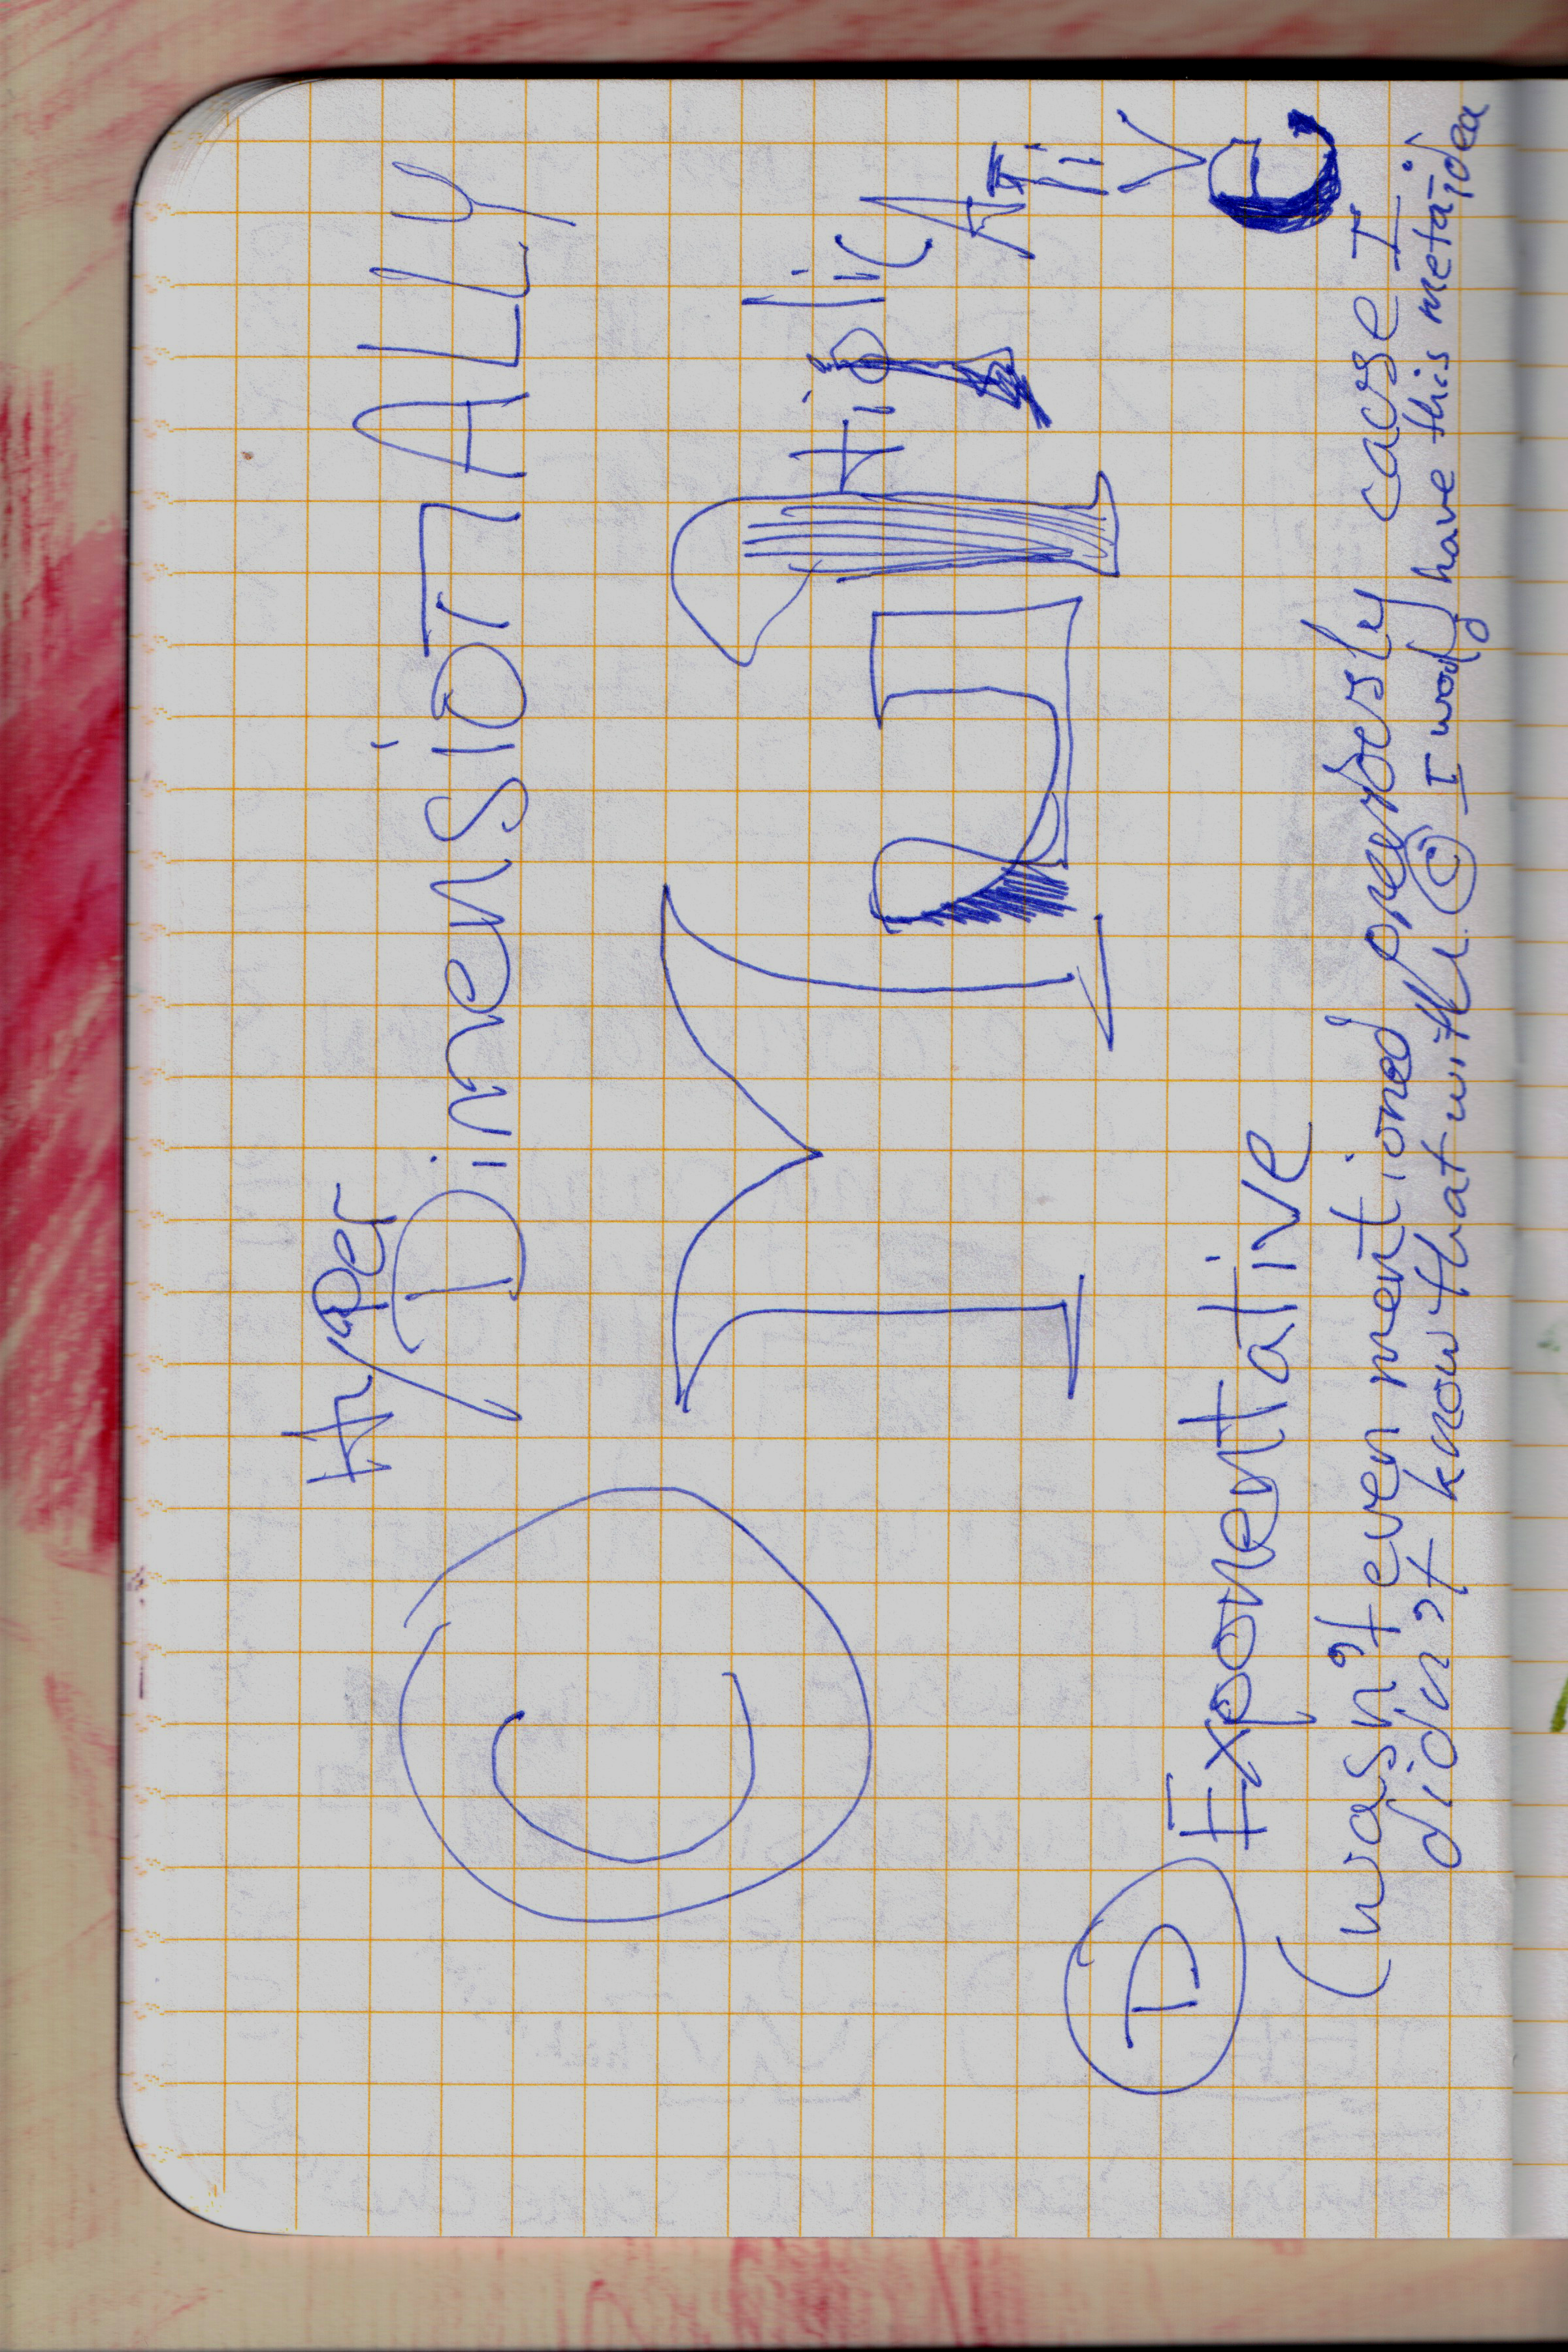 Hyper
© DimensioTALLY
MultiplicATiVe
D Exponentative
(wasn't even mentioned previously cause I
didn't know that with © I would have this meta-idea